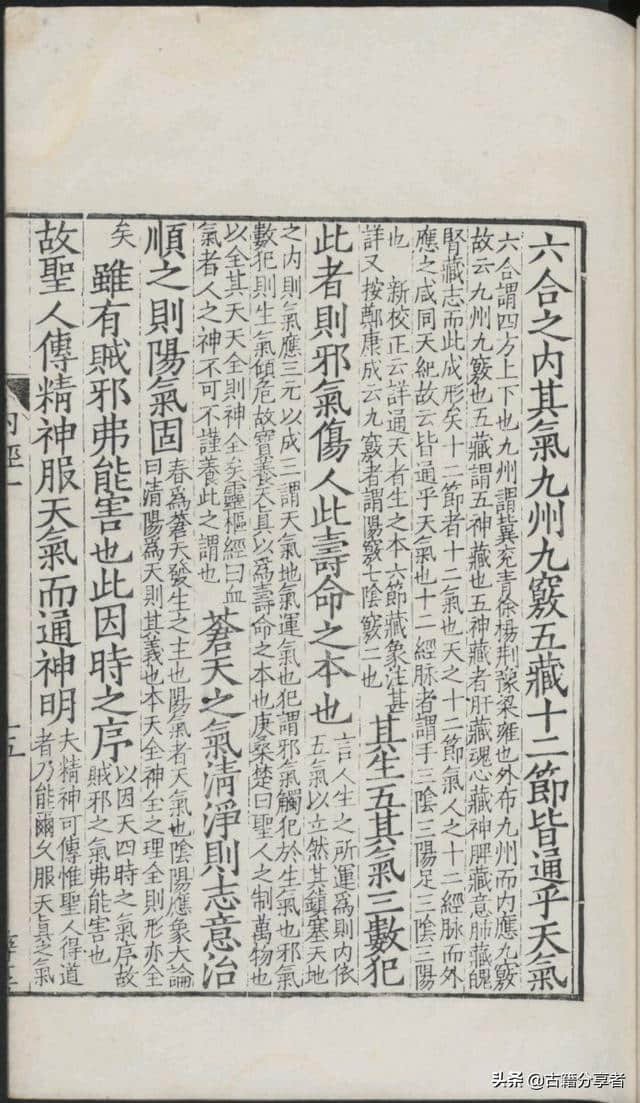 六合之内其氣九州九竅五藏十二節皆通乎天氣
六合謂四方上下也九州謂冀兖青徐楊荆豫梁雍也外布九州而内應九竅
故云九州九竅也五藏謂五神藏也五神藏者肝藏魂心藏神脾藏意肺藏魄
腎藏志而此成形矣十二節者十二氣也天之十二節氣人之十二經脉而外
應之咸同天紀故云皆通乎天氣也十二經脉者謂手三陰三陽足三陰三陽
也 新校正云詳通天者生之本六節藏象注甚
詳又按鄭康成云九竅者謂陽竅七陰竅二也
其生五其氣三數犯
此者則邪氣傷人此壽命之本也
言人生之所運爲則内依
五氣以立然其鎮塞天地
之内則氣應三元以成三謂天氣地氣運氣也犯謂邪氣觸犯於生氣也邪氣
數犯則生氣傾危故寳養天真以爲壽命之本也庚桑楚曰聖人之制萬物也
以全其天天全則神全矣靈樞經曰血
氣者人之神不可不謹養此之謂也
蒼天之氣清淨則志意治
順之則陽氣固
春爲蒼天發生之主也陽氣者天氣也陰陽應象大論
曰清陽爲天則其義也本天全神全之理全則形亦全
矣
雖有賊邪弗能害也此因時之序
以因天四時之氣序故
賊邪之氣弗能害也
故聖人傳精神服天氣而通神明
夫精神可傳惟聖人得道
者乃能爾久服天真之氣
内經一
十五
头条 @古籍分享者